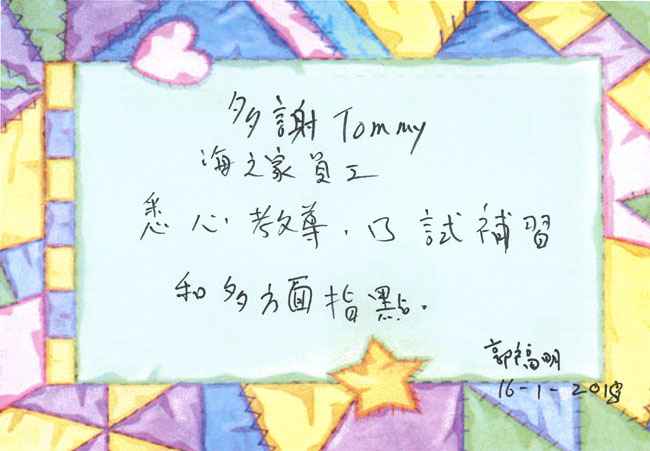 多謝 Tommy
海之家員工
悉心教導,口試補習
和多方面指點.
郭福明
16-1-2018